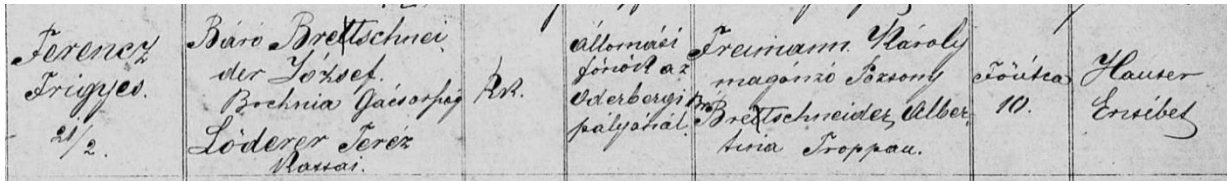 Ferencz
Frigyes.
21/2.
Báró Brettschnei
der József.
Bochnia Gácsország
Löderer Teréz
Kassai.
Rk.
Állomási
főnök az
Oderbergi
pályánál.
Freimann Károly
magánzó Pozsony
Br Brettschneider Alber-
tina Troppau.
Főutca
10.
Hauser
Erzsébet